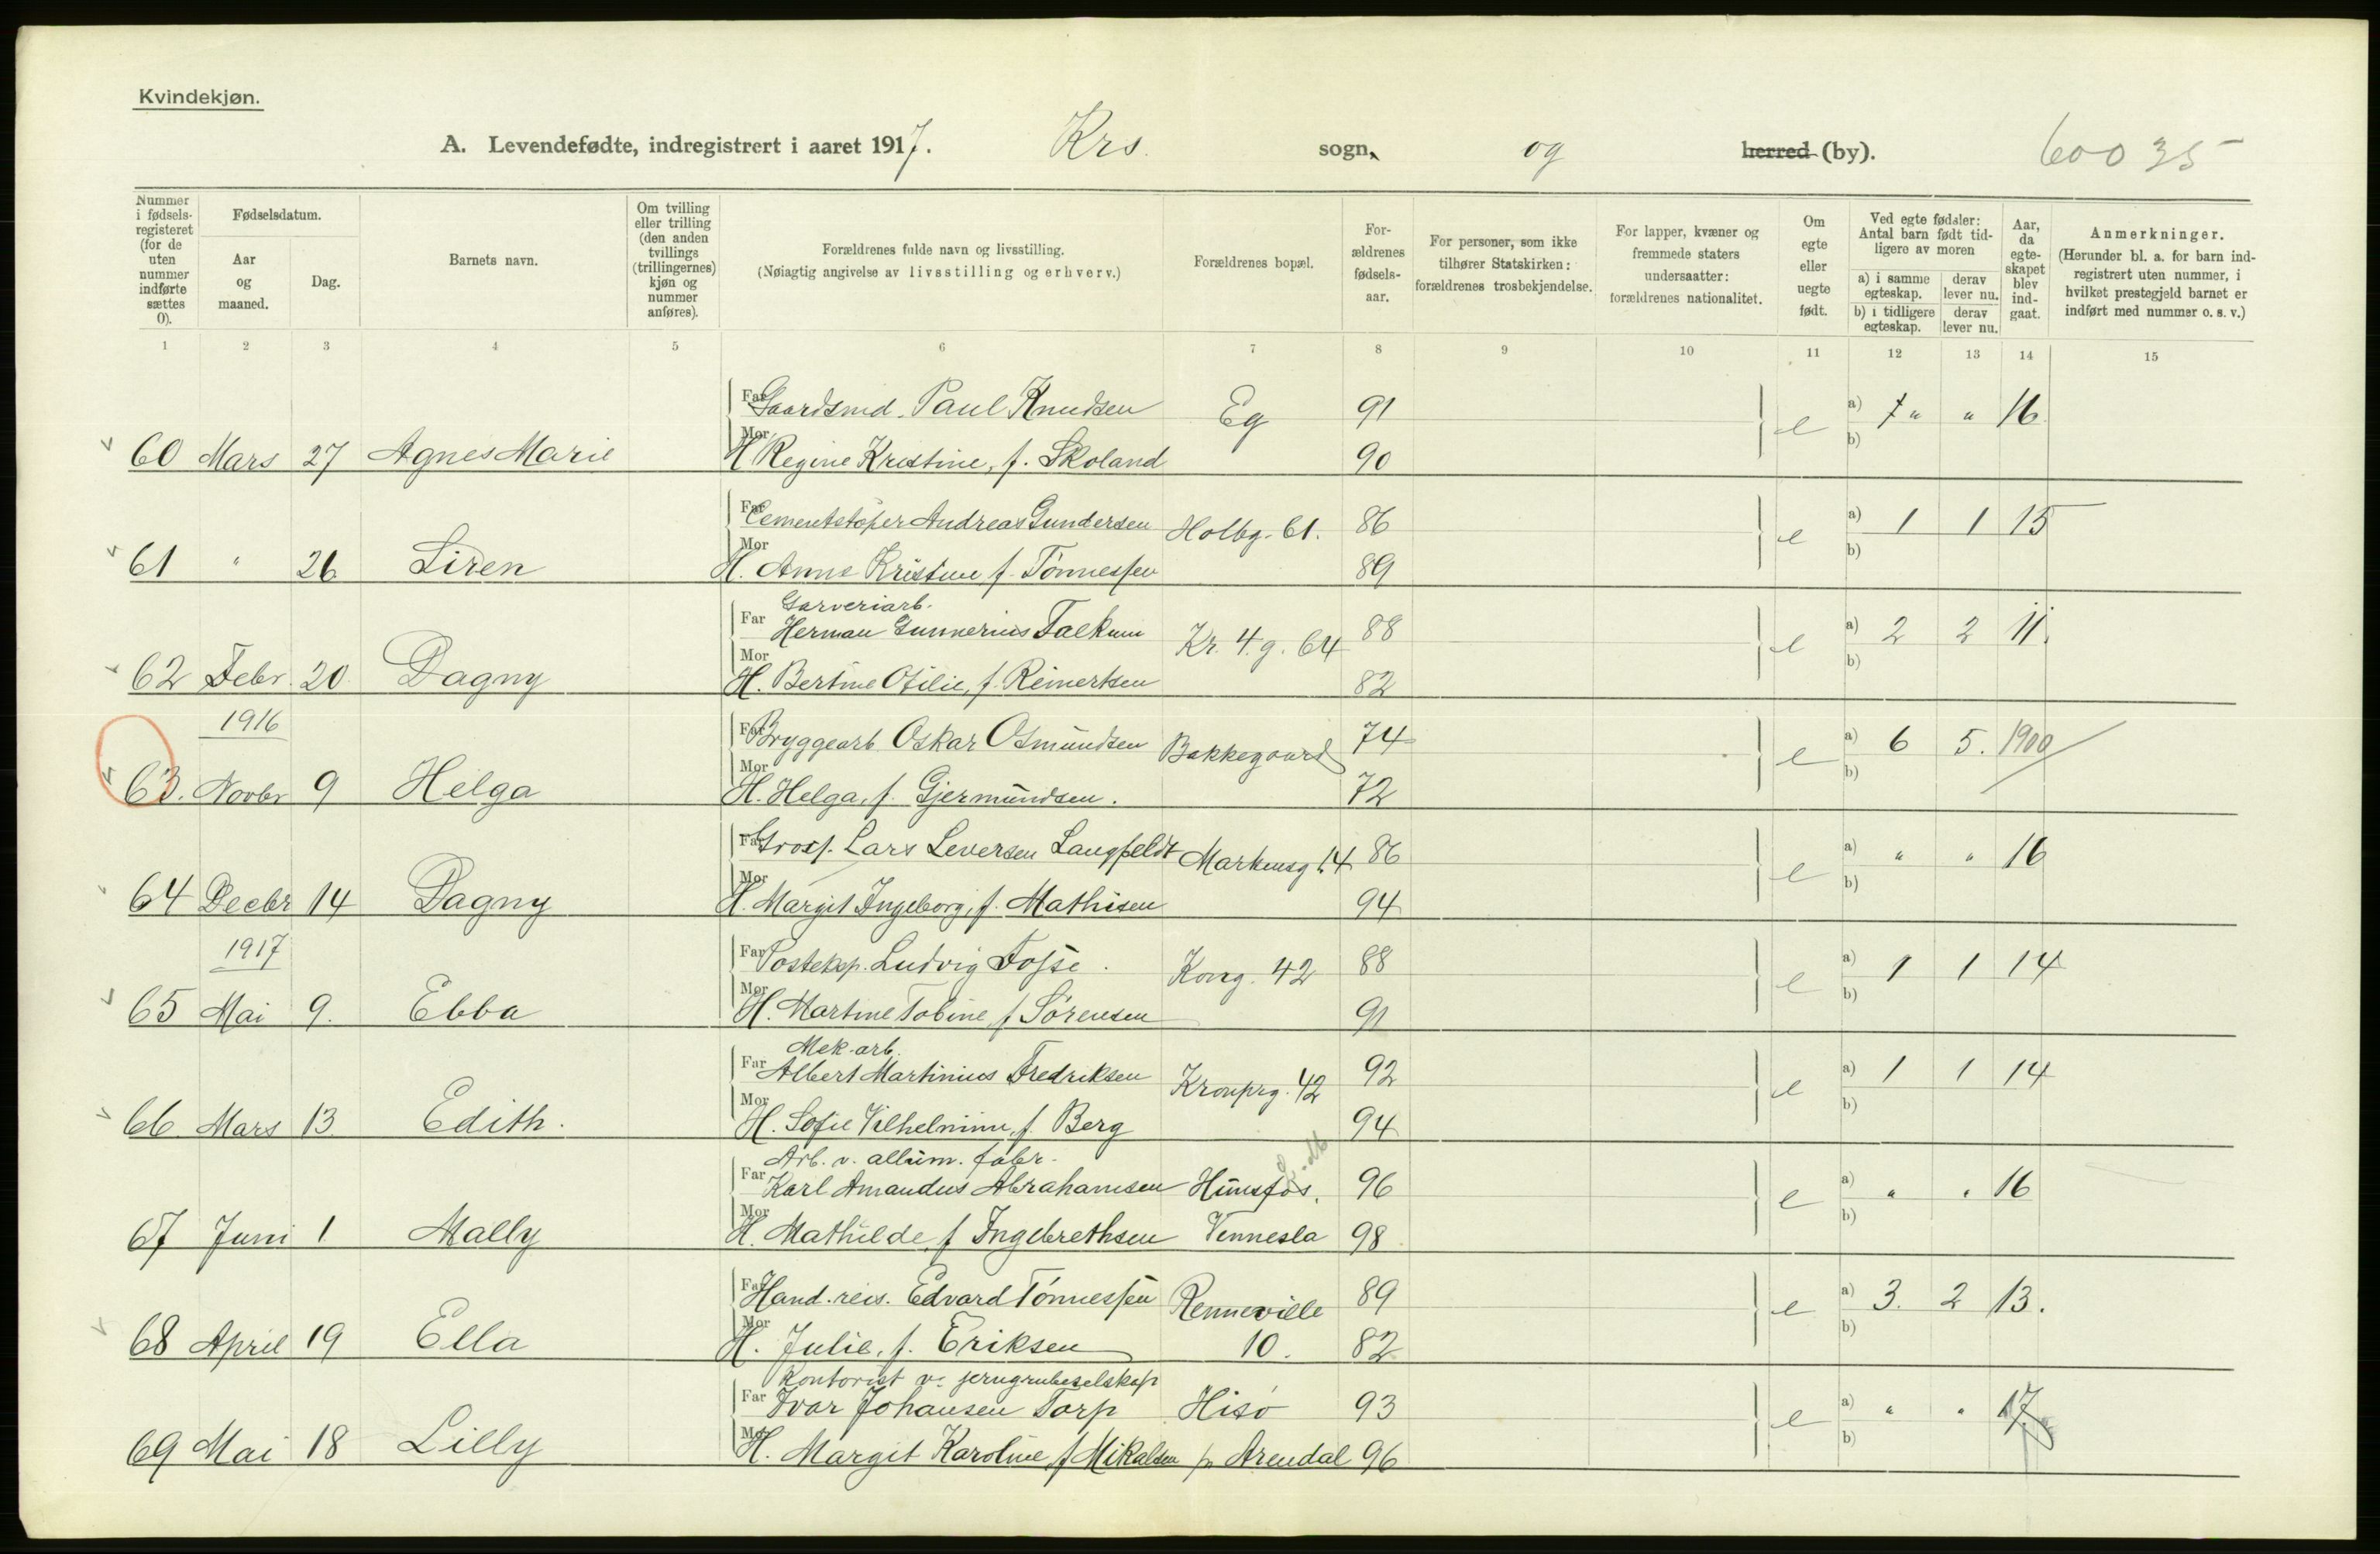 Kvindekjøn.
A. Levendefødte, indregistrert i aaret 1917. Krs. sogn, og herred (by). 60035
Nummer i fødselsregisteret (for de uten nummer indførte sættes 0).
Fødselsdatum.
Aar og maaned.
Dag.
Barnets navn.
Om tvilling eller trilling (den anden tvillings (trillingernes) kjøn og nummer anføres).
Forældrenes fulde navn og livsstilling.
(Nøiagtig angivelse av livsstilling og erhverv.)
Forældrenes bopæl.
Forældrenes fødselsaar.
For personer, som ikke tilhører Statskirken: forældrenes trosbekjendelse.
For lapper, kvæner og fremmede staters undersaatter: forældrenes nationalitet.
Om egte eller uegte født.
Ved egte fødsler: Antal barn født tidligere av moren
a) i samme egteskap. derav lever nu.
b) i tidligere egteskap. derav lever nu.
Aar, da egteskapet blev indgaat.
Anmerkninger.
(Herunder bl. a. for barn indregistrert uten nummer, i hvilket prestegjeld barnet er indført med nummer o. s. v.)
1 2 3 4 5 6 7 8 9 10 11 12 13 14 15
Far Gaardsmd. Paul Knudsen Eg 91 e a) " " 16
60 Mars 27 Agnes Marie Mor H Regine Kristine, f. Skoland 90 b)
Far Cementstøper Andreas Gundersen Holbg. 61. 86 e a) 1 1 15
61 " 26 Siren Mor H. Anne Kristine f. Tønnessen 89 b)
Garveriarb.
Far Herman Gunnerius Falkum Kr. 4. g. 64 88 e a) 2 2 11.
62 Febr. 20 Dagny Mor H. Bertine Otilie, f. Reinertsen 82 b)
1916
Far Bryggearb Oskar Osmundsen Bakkegaard 74 e a) 6 5. 1900
63. Novbr 9 Helga Mor H. Helga, f. Gjermundsen. 72 b)
Far Gross. Lars Leversen Langfeldt Markensg 14 86 e a) " " 16
64 Decbr 14 Dagny Mor H. Margit Ingeborg, f. Mathisen 94 b)
1917
Far Posteksp. Ludvig Fosse. Kong. 42 88 e a) 1 1 14
65 Mai 9. Ebba Mor H. Martine Tobine, f Sørensen 91 b)
Mek. arb.
Far Albert Martinius Fredriksen Kronprg. 42 92 e a) 1 1 14
66. Mars 13. Edith. Mor H. Sofie Vilhelmine, f. Berg 94 b)
Arb. v. allum. fabr.
Far Karl Amandus Abrahamsen Hunsfos, 96 e a) " " 16
67 Juni 1 Mally Mor H. Mathilde, f Ingebrethsen Vennesla 98 b)
Far Hand. reis. Edvard Tønnessen Renneville 89 e a) 3. 2 13.
68 April 19 Ella Mor H. Julie, f. Eriksen 10. 82 b)
Kontorist v. jerngrubeselskap
Far Ivar Johansen Torp Hisø 93 e a) " " 17
69 Mai 18 Lilly Mor H. Margit Karoline, f Mikalsen p Arendal 96 b)